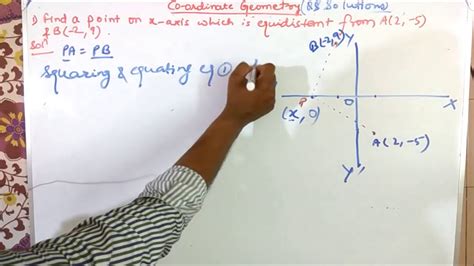 Co-ordinate Geometry (RS Solutions)
1) Find a point on x-axis which is equidistant from A(2,-5)
& B(-2,9).
Sol
PA = PB
Squaring & equating eq ①
B(-2,9)
Y
P
O
X
(x, 0)
A(2,-5)
Y'